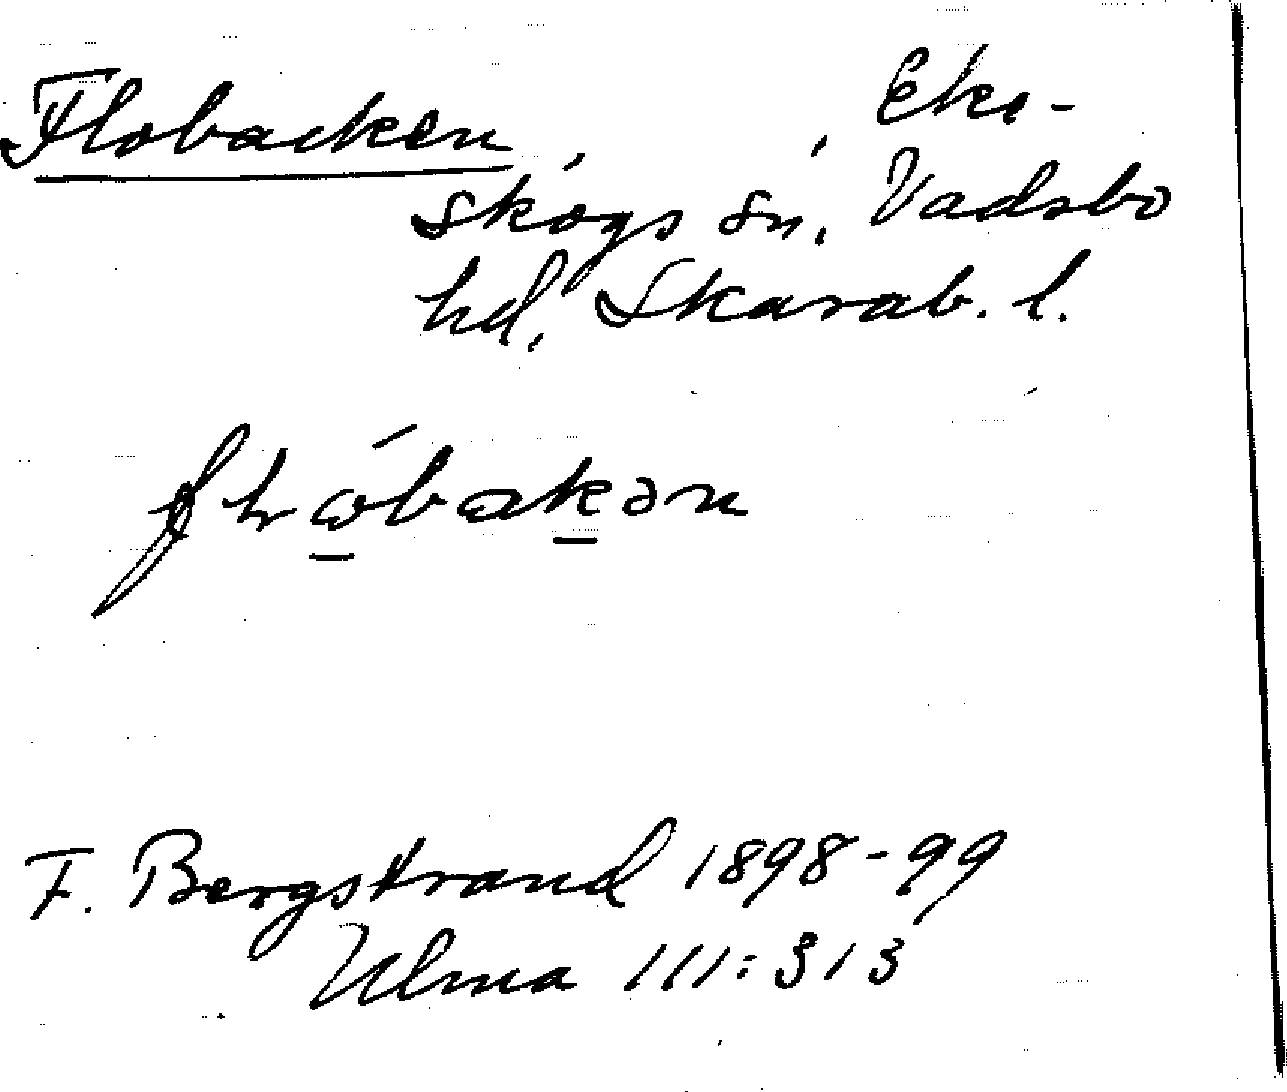 Flobacken, , Eke-
skogs sn, Vadsbo
hd, Skarab. l.
F. Bergstrand 1898-99
Ulma 111:313